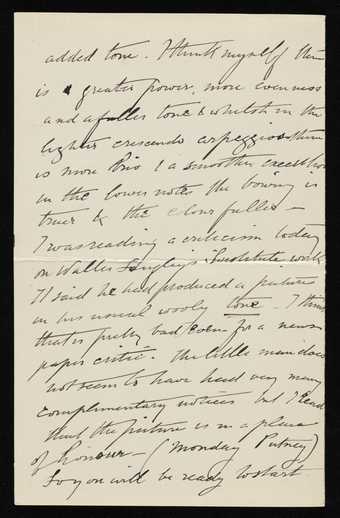 added tone. I think myself there
is a greater power, more evenness
and a fuller tone & whilst in the
lighter crescendo arpeggios there
is more & a smoother execution
in the lower notes the bowing is
truer & the colour fuller –
I was reading a criticism today
on Walter Langley's Institute work
It said he had produced a picture
in his usual wooly tone – I think
that is pretty bad even for a news-
paper critic. The little man does
not seem to have had very many
complimentary notices but I read
that the picture is in a place
of honour – (Monday Putney)
So you will be ready to start